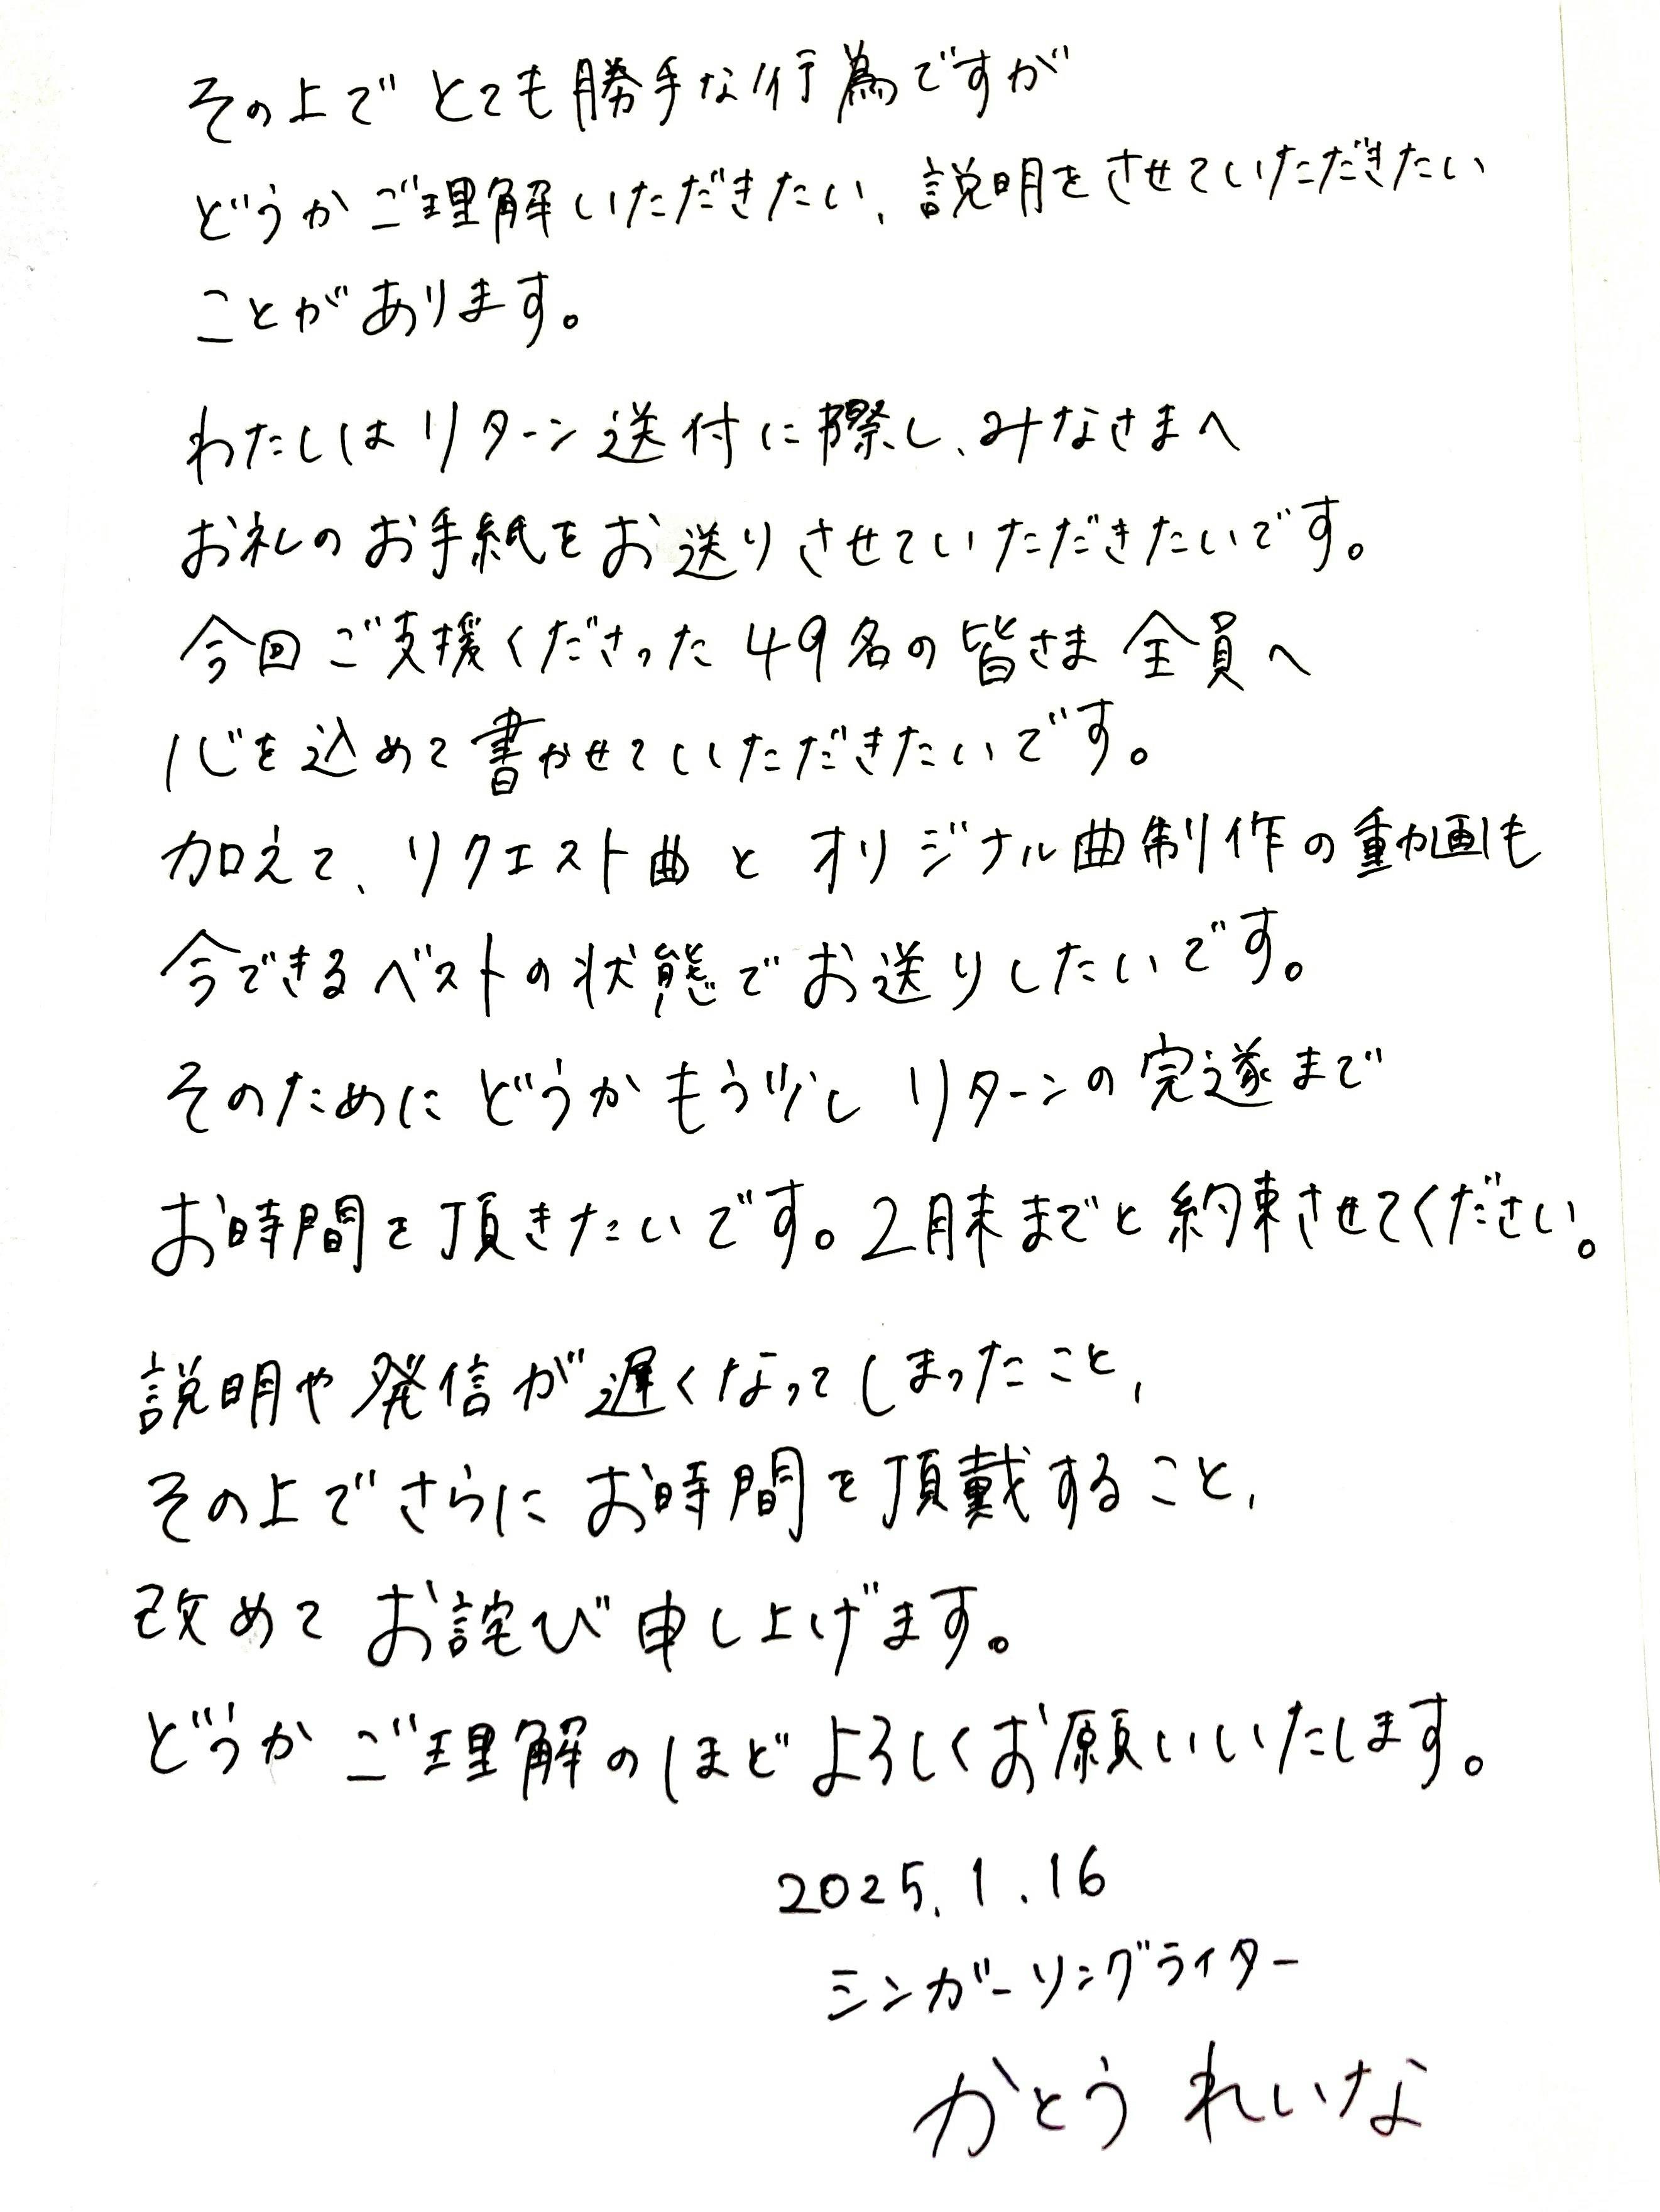 その上でとても勝手な行為ですが
どうかご理解いただきたい、説明をさせていただきたい
ことがあります。
わたしはリターン送付に際し、みなさまへ
お礼のお手紙をお送りさせていただきたいです。
今回ご支援くださった49名の皆さま全員へ
心を込めて書かせていただきたいです。
加えて、リクエスト曲とオリジナル曲制作の動画も
今できるベストの状態でお送りしたいです。
そのためにどうかもう少しリターンの完遂まで
お時間を頂きたいです。2月末までと約束させてください。
説明や発信が遅くなってしまったこと、
その上でさらにお時間を頂戴すること、
改めてお詫び申し上げます。
どうかご理解のほどよろしくお願いいたします。
2025.1.16
シンガーソングライター
かとうれいな